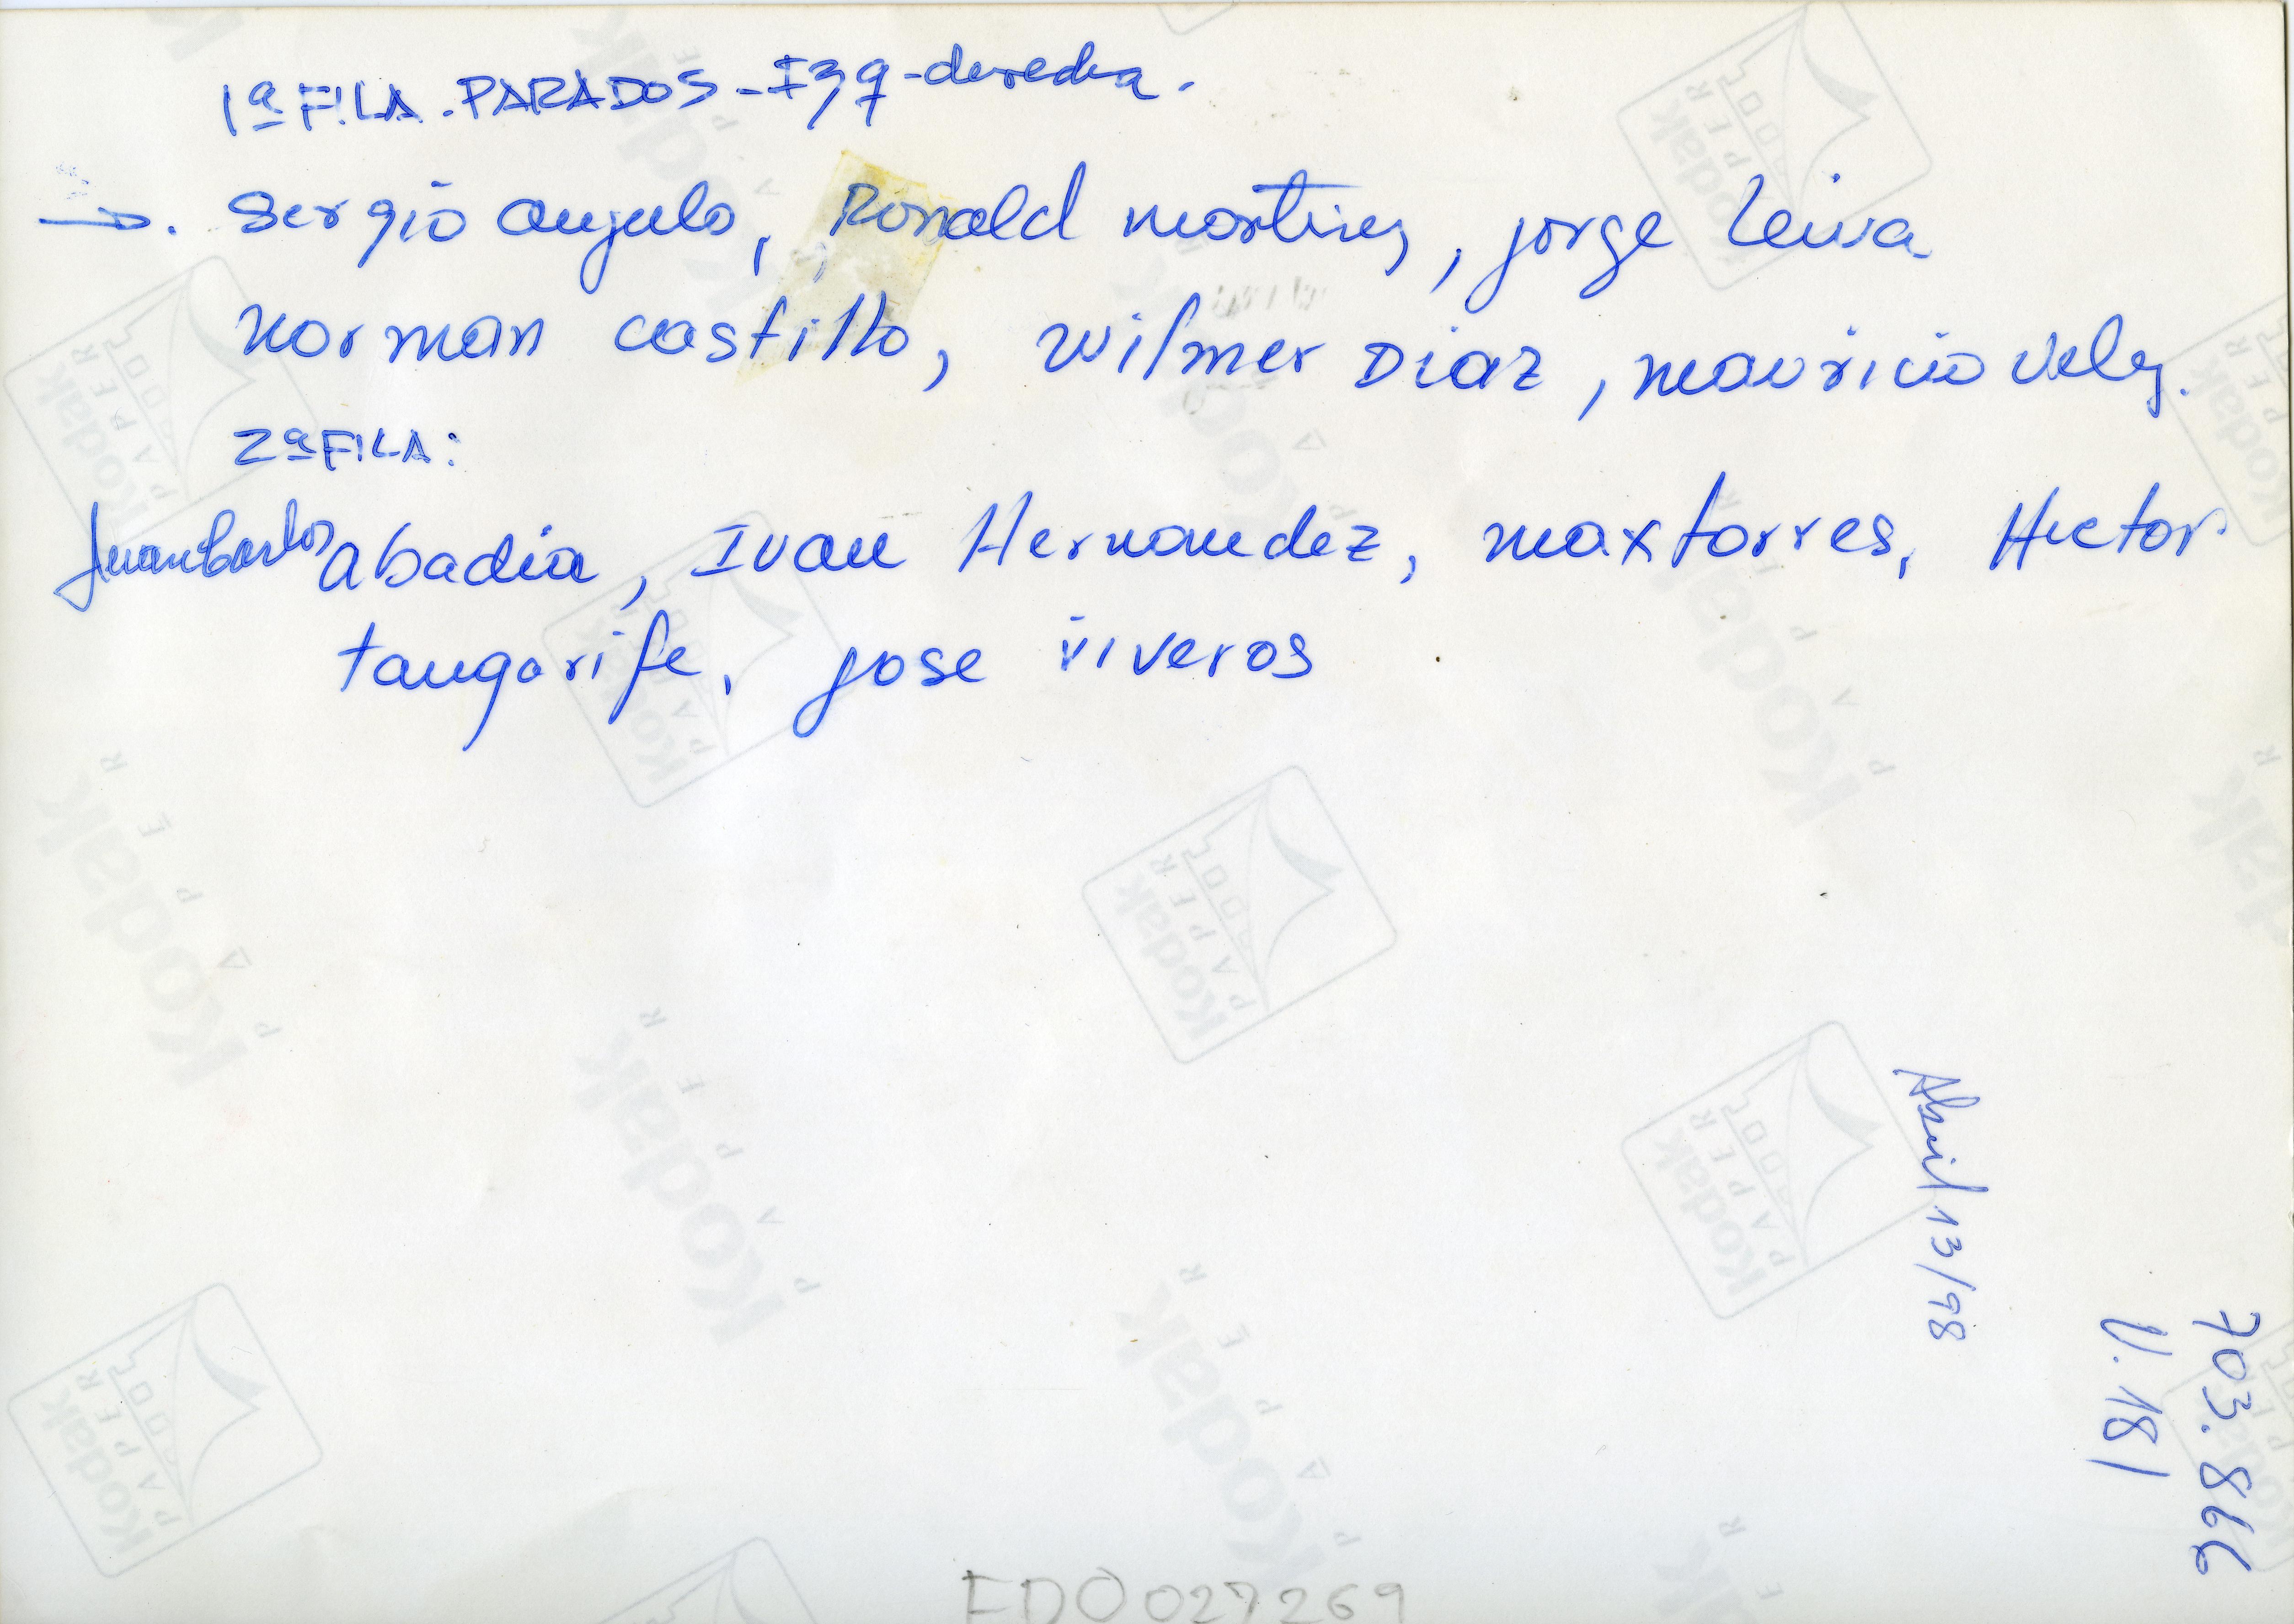 1ª FILA. PARADOS - Izq - derecha.
→. Sergio angulo, Ronald martinez, jorge Leiva
norman castillo, wilmer Diaz, mauricio velez.
2ª FILA:
Juan Carlos abadia, Ivan Hernandez, max torres, Hector
tangarife, jose viveros
Abril 13/98
703.866
V. 181
EDO027269
Kodak
PAPER